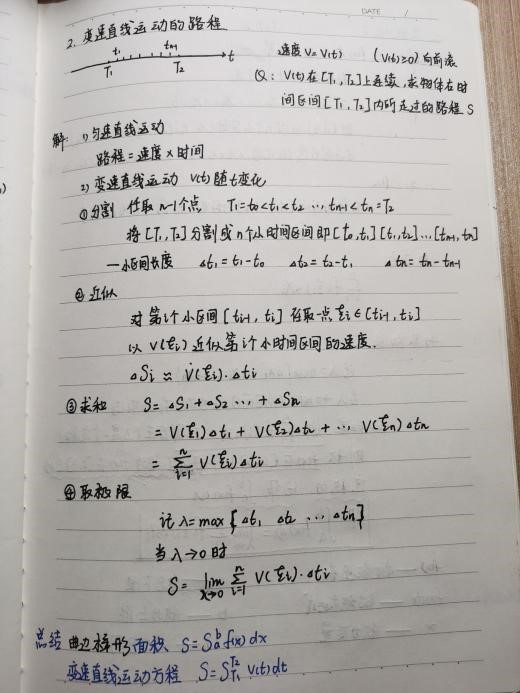 DATE /
2. 变速直线运动的路程
t₁ tₙ₋₁
T₁ T₂ t
速度 V=V(t) (V(t)≥0) 向前滚
Q: V(t) 在 [T₁, T₂] 上连续, 求物体在时
间区间 [T₁, T₂] 内所走过的路程 S
解: 1) 匀速直线运动
路程=速度×时间
2) 变速直线运动 V(t) 随t变化
① 分割 任取 n-1个点 T₁=t₀<t₁<t₂ …, tₙ₋₁<tₙ=T₂
将 [T₁,T₂] 分割成 n个小时间区间 即 [t₀,t₁] [t₁,t₂]…[tₙ₋₁,tₙ]
一小区间长度 Δt₁=t₁-t₀ Δt₂=t₂-t₁ Δtₙ=tₙ-tₙ₋₁
② 近似
对第i个小区间 [tᵢ₋₁, tᵢ] 任取一点 ξᵢ∈[tᵢ₋₁, tᵢ]
以 V(ξᵢ) 近似第i个小时间区间的速度.
ΔSᵢ ≈ V(ξᵢ)·Δtᵢ
③ 求和 S=ΔS₁+ΔS₂ …, +ΔSₙ
= V(ξ₁)Δt₁ + V(ξ₂)Δt₂ + … V(ξₙ)Δtₙ
= Σⁿᵢ₌₁ V(ξᵢ)Δtᵢ
④ 取极限
记 λ=max{Δt₁ Δt₂ … Δtₙ}
当 λ→0 时
S= lim λ→0 Σⁿᵢ₌₁ V(ξᵢ)·Δtᵢ
总结 曲边梯形面积 S=∫ₐᵇ f(x)dx
变速直线运动方程 S=∫_T₁^T₂ V(t)dt